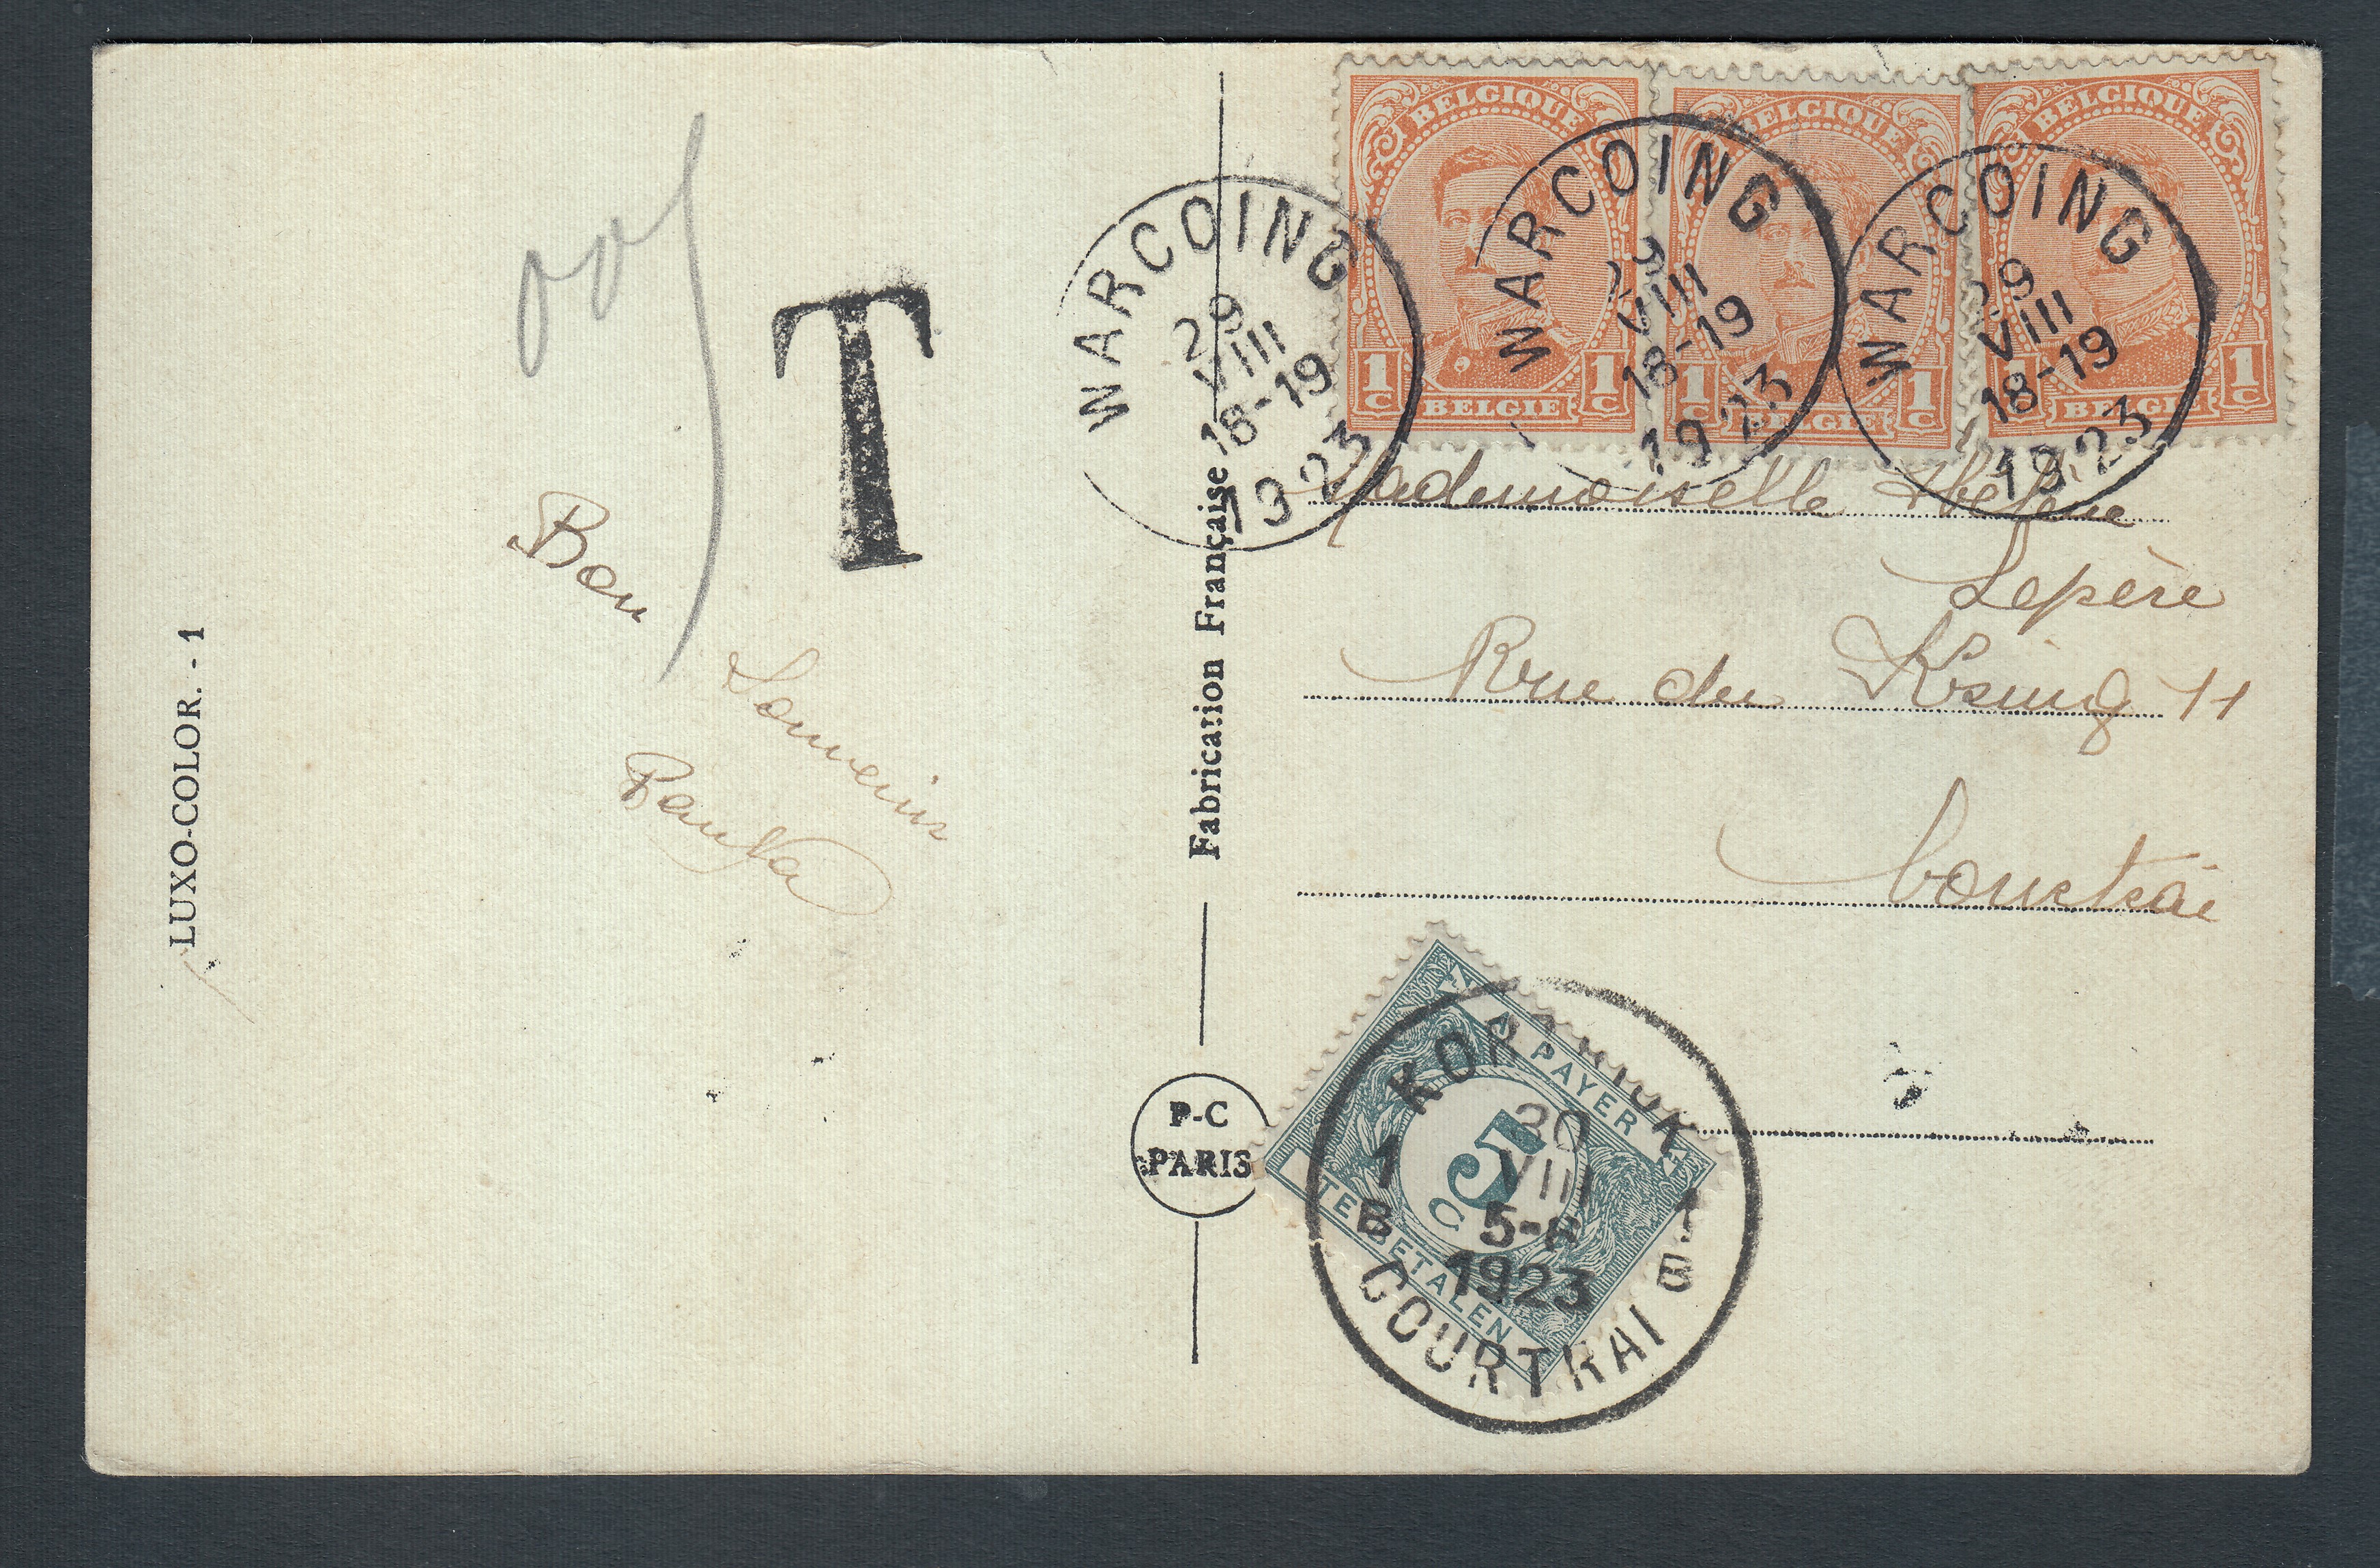 LUXO-COLOR. - 1
T
Bon
Souvenir
Fabrication Française
P-C
PARIS
BELGIQUE
1c 1c
BELGIE
BELGIQUE
1c 1c
BELGIE
BELGIQUE
1c 1c
BELGIE
WARCOING
29
VIII
18-19
1923
WARCOING
29
VIII
18-19
1923
WARCOING
29
VIII
18-19
1923
Mademoiselle
Lepère
Rue du 11
Courtrai
A PAYER
5
C
TE BETALEN
KORTRIJK
30
VIII
1 1
B B
1923
COURTRAI